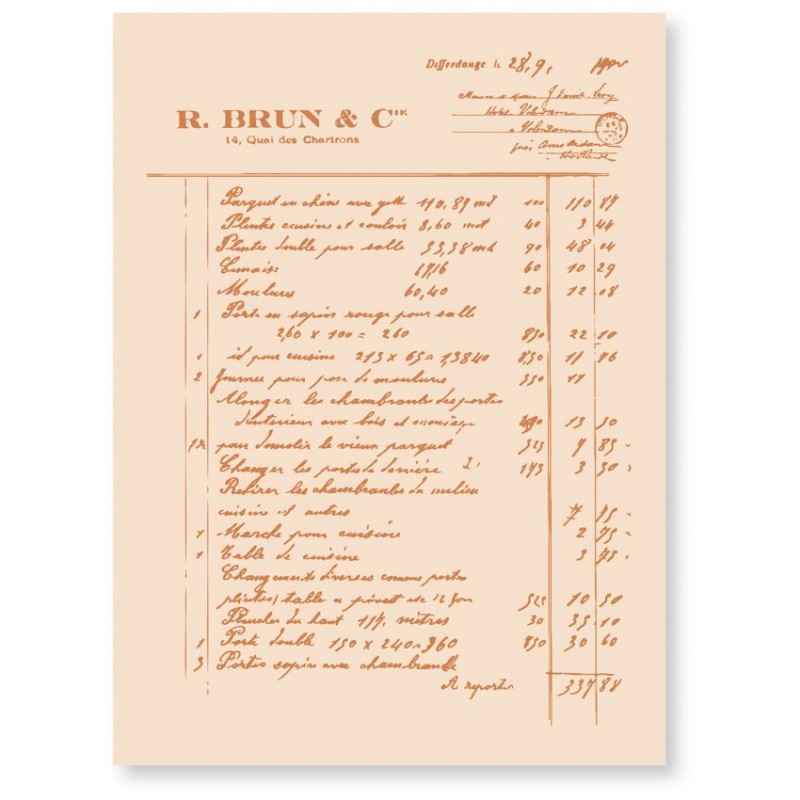 Differdange le 28, 9,
R. BRUN & Cie
14, Quai des Chartrons
Hotel
à Volendam
près Amsterdam
Hollande
Parquet en chêne avec 110,89 m² 100 110 89
Plintes cuisine et couloir 8,60 mct 40 3 44
Plintes double pour salle 53,38 mct 90 48 04
60 10 29
Moulures 60,40 20 12 08
1 Porte en sapin rouge pour salle
2,60 x 100 = 260 850 22 10
1 id pour cuisine 213 x 65 = 1,3840 850 11 76
2 Journee pour pose de moulures 550 11
Alonger les chambrantes des portes
d'interieur avec bois et 13 50
pour demolir le vieux parquet 525
Changer les portes de derrière 175 3 50
Retirer les chambrantes du milieu
cuisine et autres
1 Marche pour cuisine 2 75
1 Table de cuisine 3 75
Changements diverses comme portes
plintes, table a etc 12 525 10 50
Plancher du haut 117, mètres 30 35 10
1 Porte double 150 x 240 = 360 850 30 60
3 Portes sapin avec chambrante
A reporter 337 88